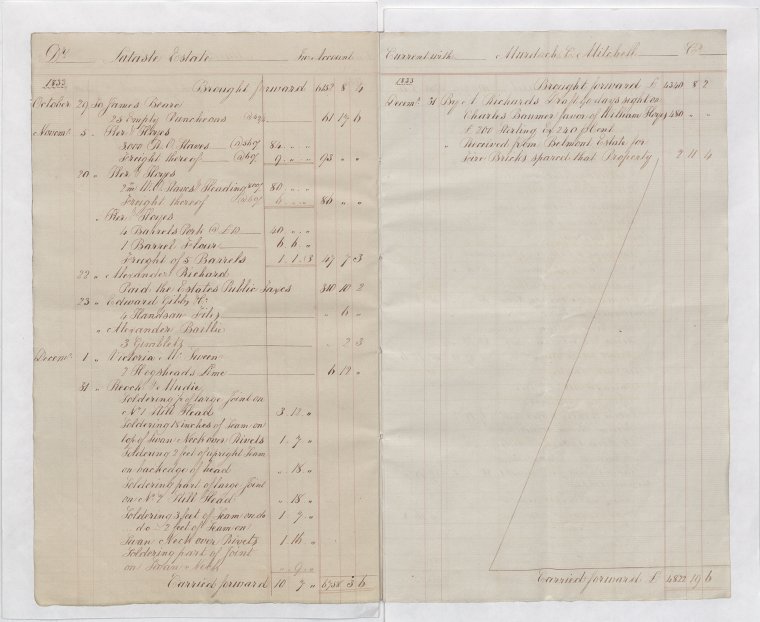 Dr. Estate In Account
1833
Brought forward 6152 8 4
October 29 To James Beare
25 Empty Puncheons 61 17 6
Novemr. 5 " Hoyes
3000 R.O. Staves 84 " "
Freight thereof 9 " " 93 " "
20 " Hoyes
2m W.O. Staves & Heading 80 " "
Freight thereof 6 " " 86 " "
" Hoyes
4 Barrels Pork @ £10 40 " "
1 Barrel Flour 6 6 "
Freight of 5 Barrels 1 1 3 47 7 3
22 " Alexander Richard
Paid the Estates Public Taxes 310 10 2
23 " Edward Gibbs
4 Handsaw Files " 6 "
" Alexander Baillie
3 Gimblets " 2 3
Decemr. 1 " Victoria
2 Hogsheads Lime 6 12 "
31 " & Mudie
Soldering of large Joint on
No. 1 Still Head 3 12 "
Soldering 18 inches of Seam on
top of Swan Neck over Rivets 1 7 "
Soldering 2 feet of upright Seam
on backedge of head " 18 "
Soldering part of large Joint
on No. 2 Still Head " 18 "
Soldering 3 feet of Seam on do 1 7 "
do 2 feet of Seam on
Swan Neck over Rivets 1 16 "
Soldering part of Joint
on Swan Neck " 9 "
Carried forward 10 7 " 6758 3 6
Current with Murdoch & Mitchell Cr.
1833
Brought forward £ 4340 8 2
Decemr. 31 By A Richards Draft 90 days sight on
Charles favor of William Hoyes 480 " "
£ 200 Sterling Ex 240 pCent
" Received from Belmont Estate for
Fire Bricks spared that Property 2 11 4
Carried forward £ 4822 19 6